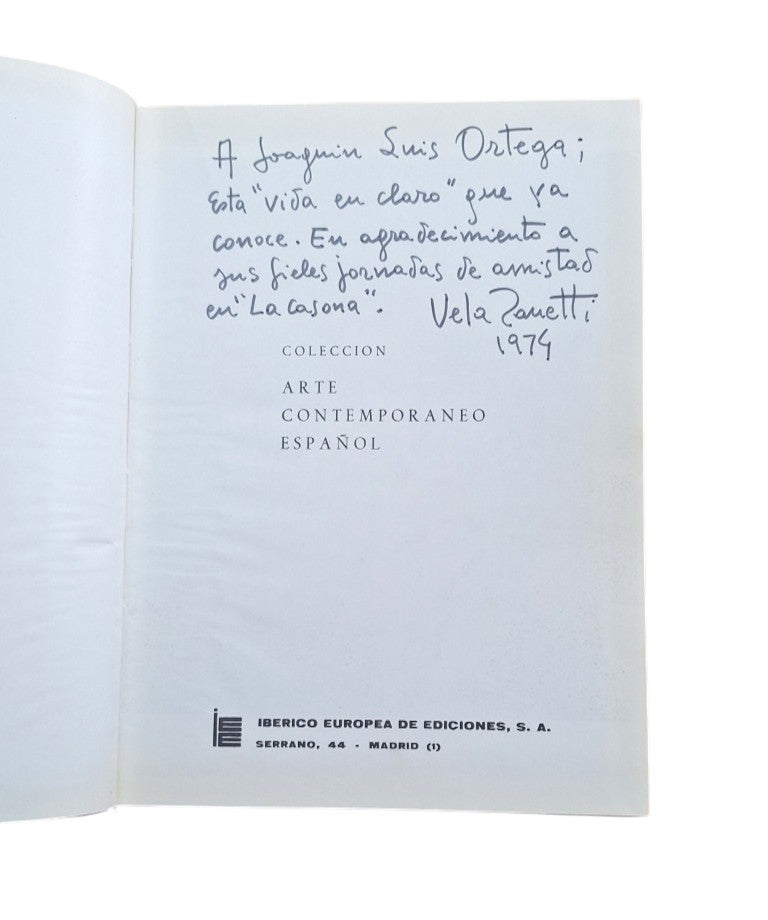 A Joaquin Luis Ortega;
Esta "vida en claro" que ya
conoce. En agradecimiento a
sus fieles jornadas de amistad
en "La casona". Vela Zanetti
1974
COLECCION
ARTE
CONTEMPORANEO
ESPAÑOL
IBERICO EUROPEA DE EDICIONES, S. A.
SERRANO, 44 - MADRID (1)